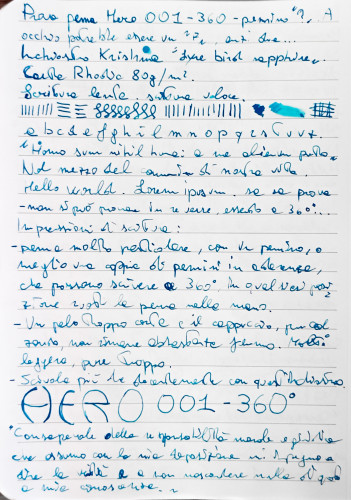 Prova penna Hero 001-360 - pennino "?, A
occhio potrebbe essere un
Inchiostro Krishna "lyre bird sapphire".
Carta Rhodia 80g/m².
Scrittura lenta. scrittura veloce.
a b c d e f g h i l m n o p q r s t u v z.
"Homo sum nihil humani a me alienum puto"
Nel mezzo del cammin di nostra vita.
Hello world. Lorem ipsum. se la prova
- non si può provare in reverse, essendo a 360°...
Impressioni di scrittura:
- penna molto particolare, con un pennino, o
meglio una coppia di pennini in aderenza,
che possono scrivere a 360° in qualsiasi posi
zione ruoti la penna nella mano.
- Un pelo troppo corta e il cappuccio, pur
non rimane abbastanza fermo. Molto
leggera, pure troppo.
- Scivola più che decentemente con quest'inchiostro.
HERO 001-360°
"Consapevole della responsabilità morale e giuridica
che assumo con la mia deposizione mi impegno a
dire la verità e a non nascondere nulla di quanto
a mia conoscenza."